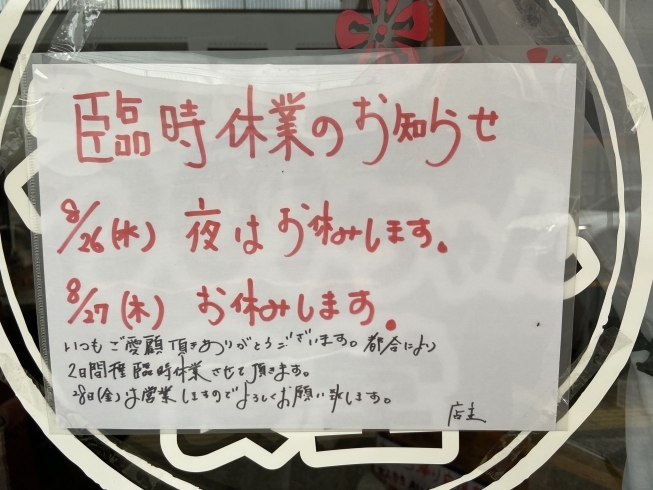 臨時休業のお知らせ
8/26(水) 夜はお休みします。
8/27(木) お休みします。
いつもご愛顧頂きありがとうございます。都合により
2日間程臨時休業させて頂きます。
28日(金)は営業しますのでよろしくお願い致します。
店主